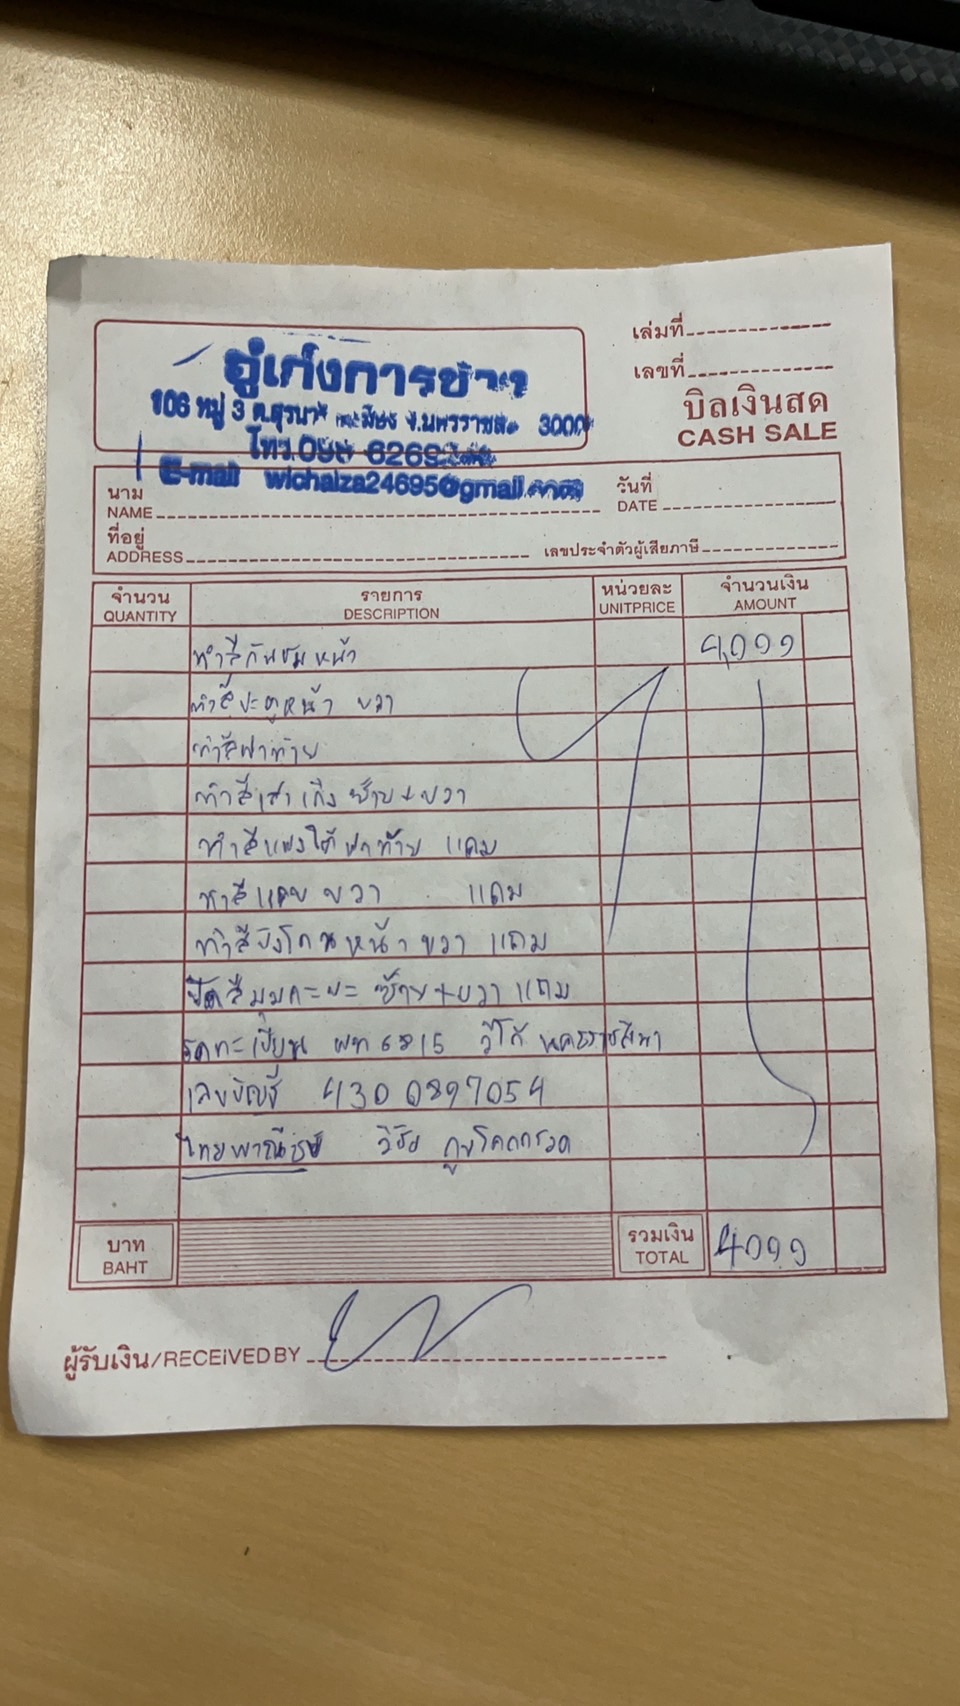 อู่เก่งการช่าง
106 หมู่ 3 ต.สุรนารี อ.เมือง จ.นครราชสีมา 3000
โทร.098 6269
E-mail wichaiza24695@gmail.com
เล่มที่
เลขที่
บิลเงินสด
CASH SALE
นาม
NAME
วันที่
DATE
ที่อยู่
ADDRESS
เลขประจำตัวผู้เสียภาษี
จำนวน รายการ หน่วยละ จำนวนเงิน
QUANTITY DESCRIPTION UNITPRICE AMOUNT
ทำสีกันชนหน้า 4,000
ทำสีประตูหน้า ขวา
ทำสีฝาท้าย
ทำสีเสาเก๋ง ซ้าย + ขวา
ทำสีแผงใต้ฝาท้าย แถม
ทำสีแคบ ขวา แถม
ทำสีบังโคลนหน้า ขวา แถม
สีมุมกะบะ ซ้าย + ขวา แถม
ผท 6815 วีโก้ นครราชสีมา
เลขบัญชี 430 0897054
ไทยพาณิชย์ วิชัย ภูขโคกกรวด
บาท
BAHT
รวมเงิน
TOTAL
4000
ผู้รับเงิน/RECEIVED BY